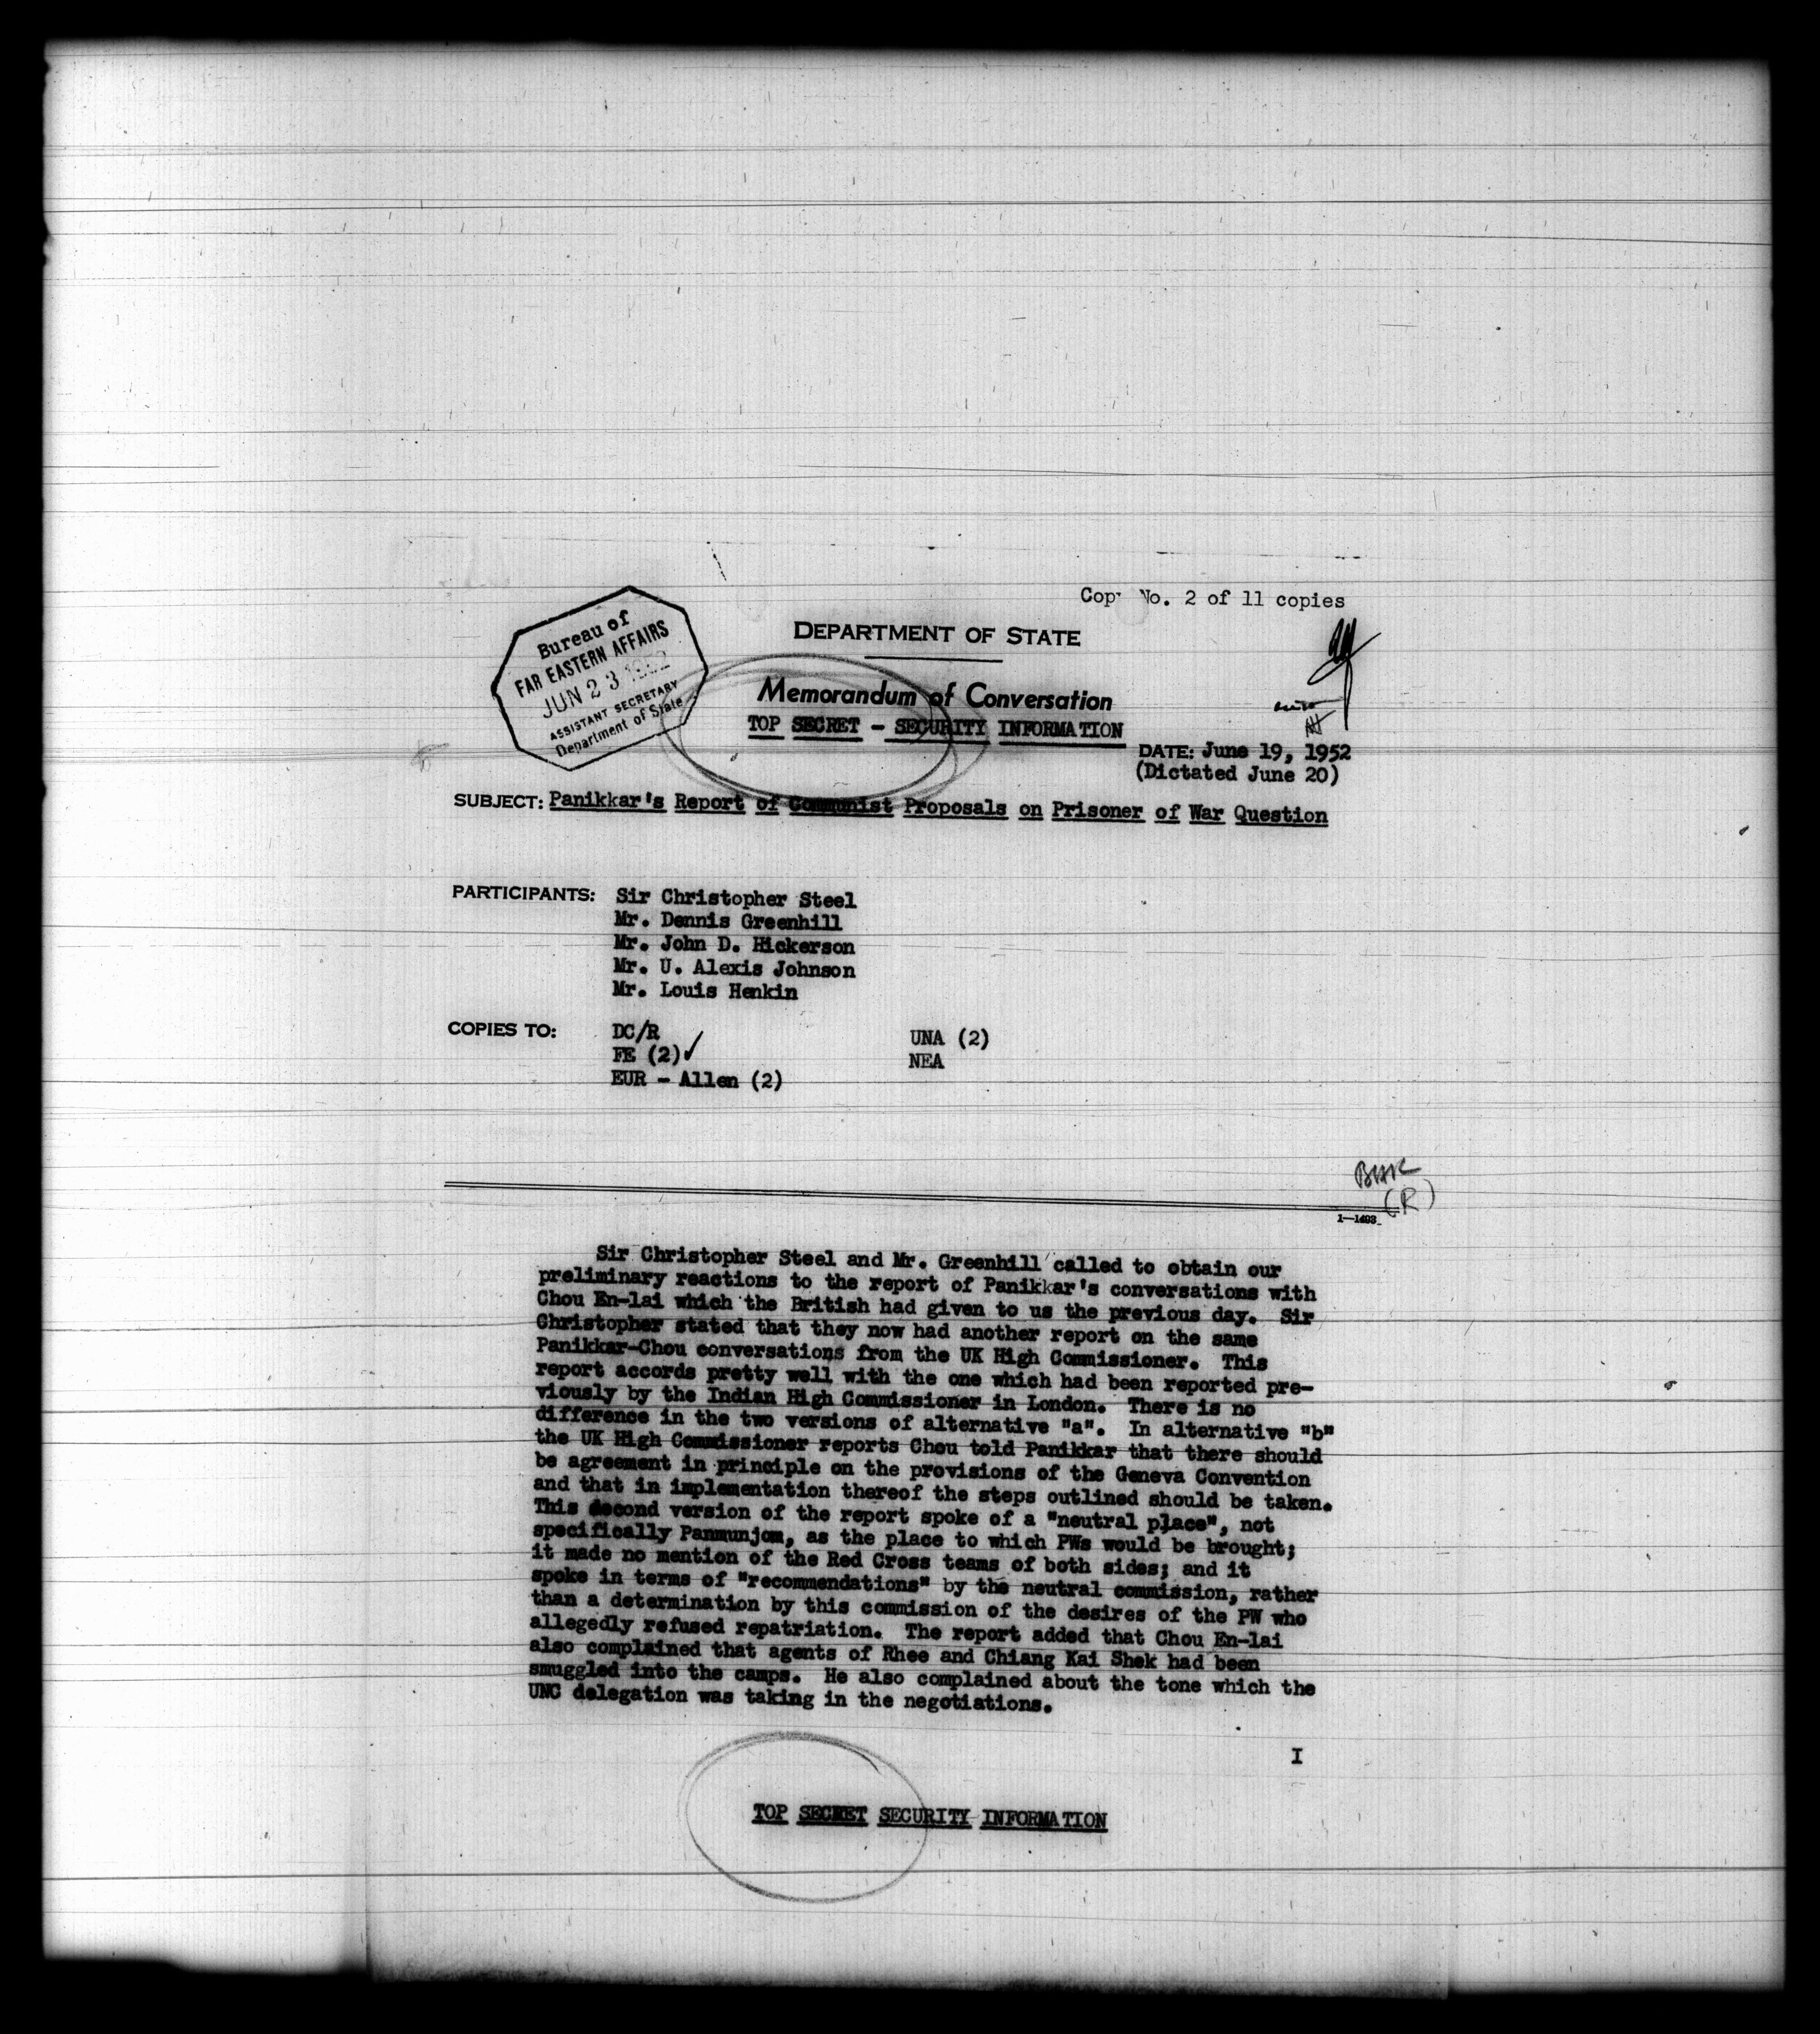 Cop No. 2 of 11 copies
Bureau of
FAR EASTERN AFFAIRS
JUN 23 1952
ASSISTANT SECRETARY
Department of State
DEPARTMENT OF STATE
Memorandum of Conversation
TOP SECRET - SECURITY INFORMATION
DATE: June 19, 1952
(Dictated June 20)
SUBJECT: Panikkar's Report of Communist Proposals on Prisoner of War Question
PARTICIPANTS: Sir Christopher Steel
Mr. Dennis Greenhill
Mr. John D. Hickerson
Mr. U. Alexis Johnson
Mr. Louis Henkin
COPIES TO: DC/R UNA (2)
FE (2) NEA
EUR - Allen (2)
(R)
1-1493
Sir Christopher Steel and Mr. Greenhill called to obtain our
preliminary reactions to the report of Panikkar's conversations with
Chou En-lai which the British had given to us the previous day. Sir
Christopher stated that they now had another report on the same
Panikkar-Chou conversations from the UK High Commissioner. This
report accords pretty well with the one which had been reported pre-
viously by the Indian High Commissioner in London. There is no
difference in the two versions of alternative "a". In alternative "b"
the UK High Commissioner reports Chou told Panikkar that there should
be agreement in principle on the provisions of the Geneva Convention
and that in implementation thereof the steps outlined should be taken.
This second version of the report spoke of a "neutral place", not
specifically Panmunjom, as the place to which PWs would be brought;
it made no mention of the Red Cross teams of both sides; and it
spoke in terms of "recommendations" by the neutral commission, rather
than a determination by this commission of the desires of the PW who
allegedly refused repatriation. The report added that Chou En-lai
also complained that agents of Rhee and Chiang Kai Shek had been
smuggled into the camps. He also complained about the tone which the
UNC delegation was taking in the negotiations.
I
TOP SECRET SECURITY INFORMATION